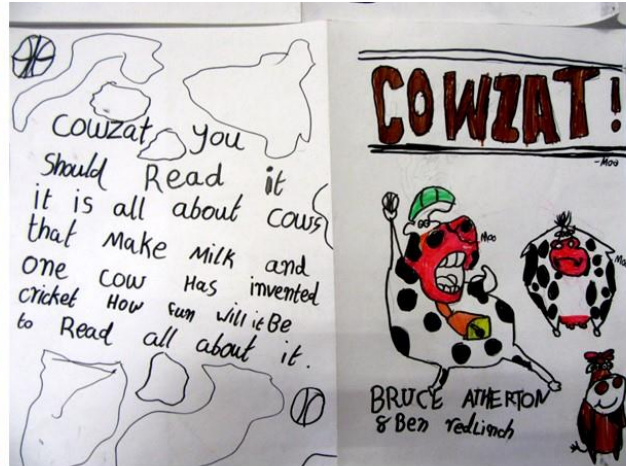 Cowzat you
Should Read it
it is all about cows
that make milk and
one cow Has invented
cricket How fun will it Be
to Read all about it.
COWZAT!
-Moo
Moo
BRUCE ATHERTON
& Ben redLinch